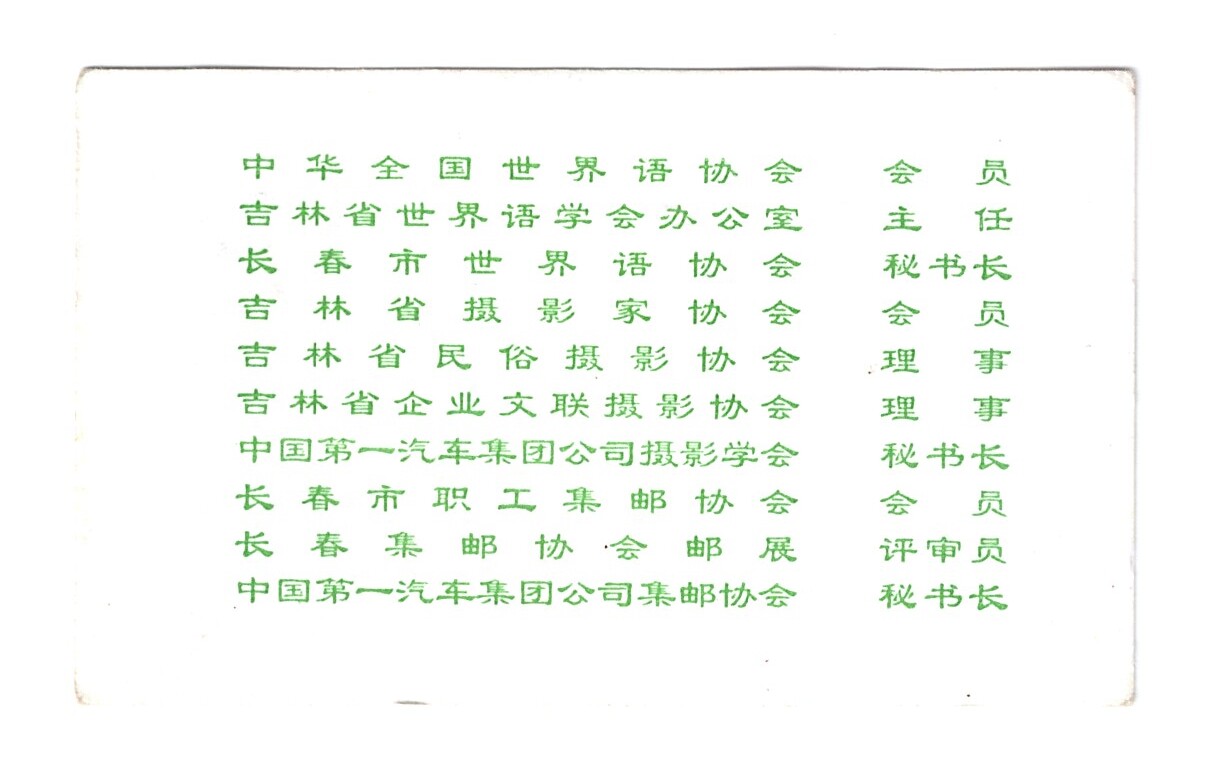 中华全国世界语协会 会员
吉林省世界语学会办公室 主任
长春市世界语协会 秘书长
吉林省摄影家协会 会员
吉林省民俗摄影协会 理事
吉林省企业文联摄影协会 理事
中国第一汽车集团公司摄影学会 秘书长
长春市职工集邮协会 会员
长春集邮协会邮展 评审员
中国第一汽车集团公司集邮协会 秘书长